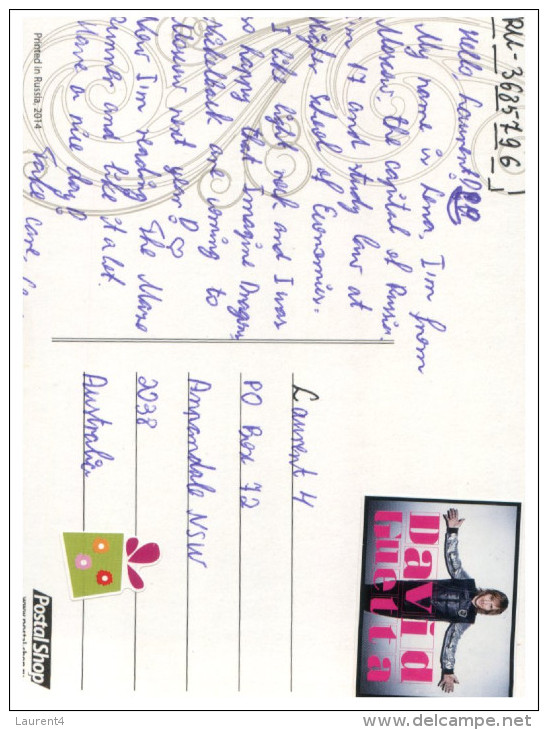 RU-3685796
Hello, Laurent!
My name is Lena, I'm from
Moscow, the capital of Russia.
I'm 17 and study law at
Higher School of Economics.
I like light rock and I was
so happy that Imagine Dragons,
Nickelback are coming to
Moscow next year! ♡
Now I'm reading The Maze
Runner and like it a lot.
Have a nice day!
Take care,
Printed in Russia, 2014
Laurent 4
PO Box 72
Annandale NSW
2038
Australia
David
Guetta
Postal Shop
Laurent4
www.delcampe.net